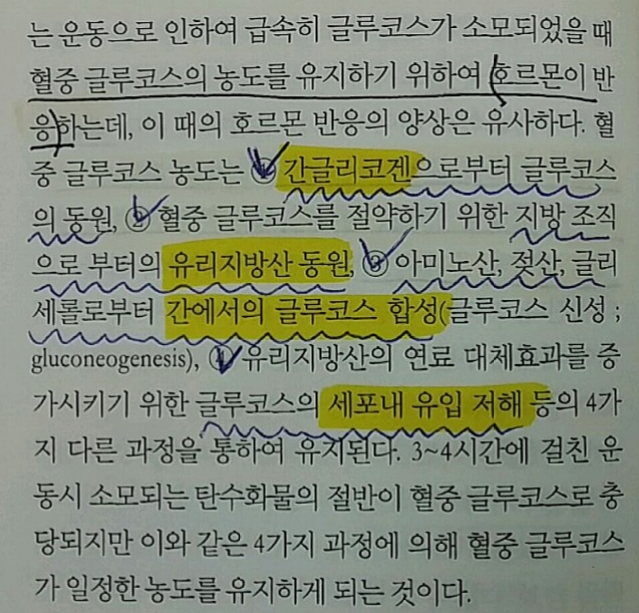 는 운동으로 인하여 급속히 글루코스가 소모되었을 때
혈중 글루코스의 농도를 유지하기 위하여 (호르몬이 반
응)하는데, 이 때의 호르몬 반응의 양상은 유사하다. 혈
중 글루코스 농도는 ① 간글리코겐으로부터 글루코스
의 동원, ② 혈중 글루코스를 절약하기 위한 지방 조직
으로 부터의 유리지방산 동원, ③ 아미노산, 젖산, 글리
세롤로부터 간에서의 글루코스 합성(글루코스 신성 ;
gluconeogenesis), ④ 유리지방산의 연료 대체효과를 증
가시키기 위한 글루코스의 세포내 유입 저해 등의 4가
지 다른 과정을 통하여 유지된다. 3~4시간에 걸친 운
동시 소모되는 탄수화물의 절반이 혈중 글루코스로 충
당되지만 이와 같은 4가지 과정에 의해 혈중 글루코스
가 일정한 농도를 유지하게 되는 것이다.